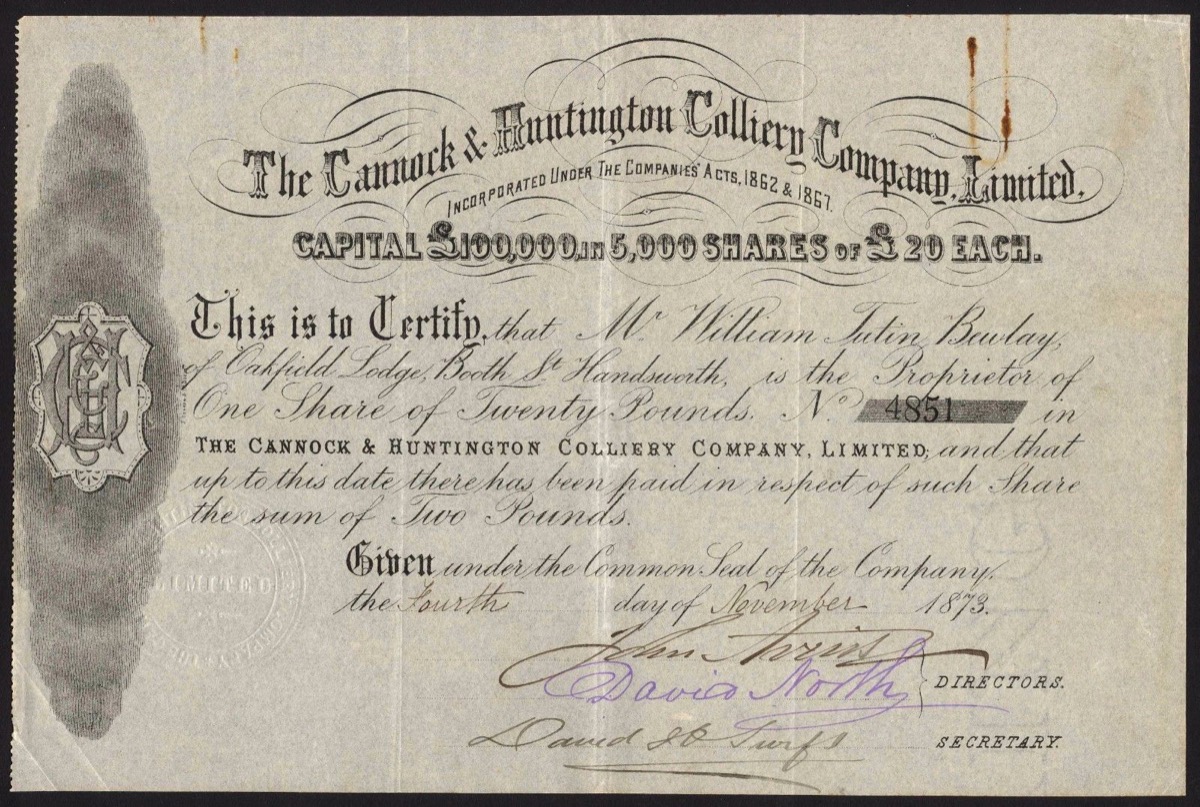 The Cannock & Huntington Colliery Company, Limited.
INCORPORATED UNDER THE COMPANIES' ACTS, 1862 & 1867.
CAPITAL £100,000, IN 5,000 SHARES OF £20 EACH.
This is to Certify, that Mr William Tutin Bewlay,
of Oakfield Lodge, Booth St Handsworth, is the Proprietor of
One Share of Twenty Pounds. No. 4851 in
THE CANNOCK & HUNTINGTON COLLIERY COMPANY, LIMITED; and that
up to this date there has been paid in respect of such Share
the sum of Two Pounds.
LIMITED
Given under the Common Seal of the Company,
the Fourth day of November 1873.
John
David North
DIRECTORS.
David
SECRETARY.